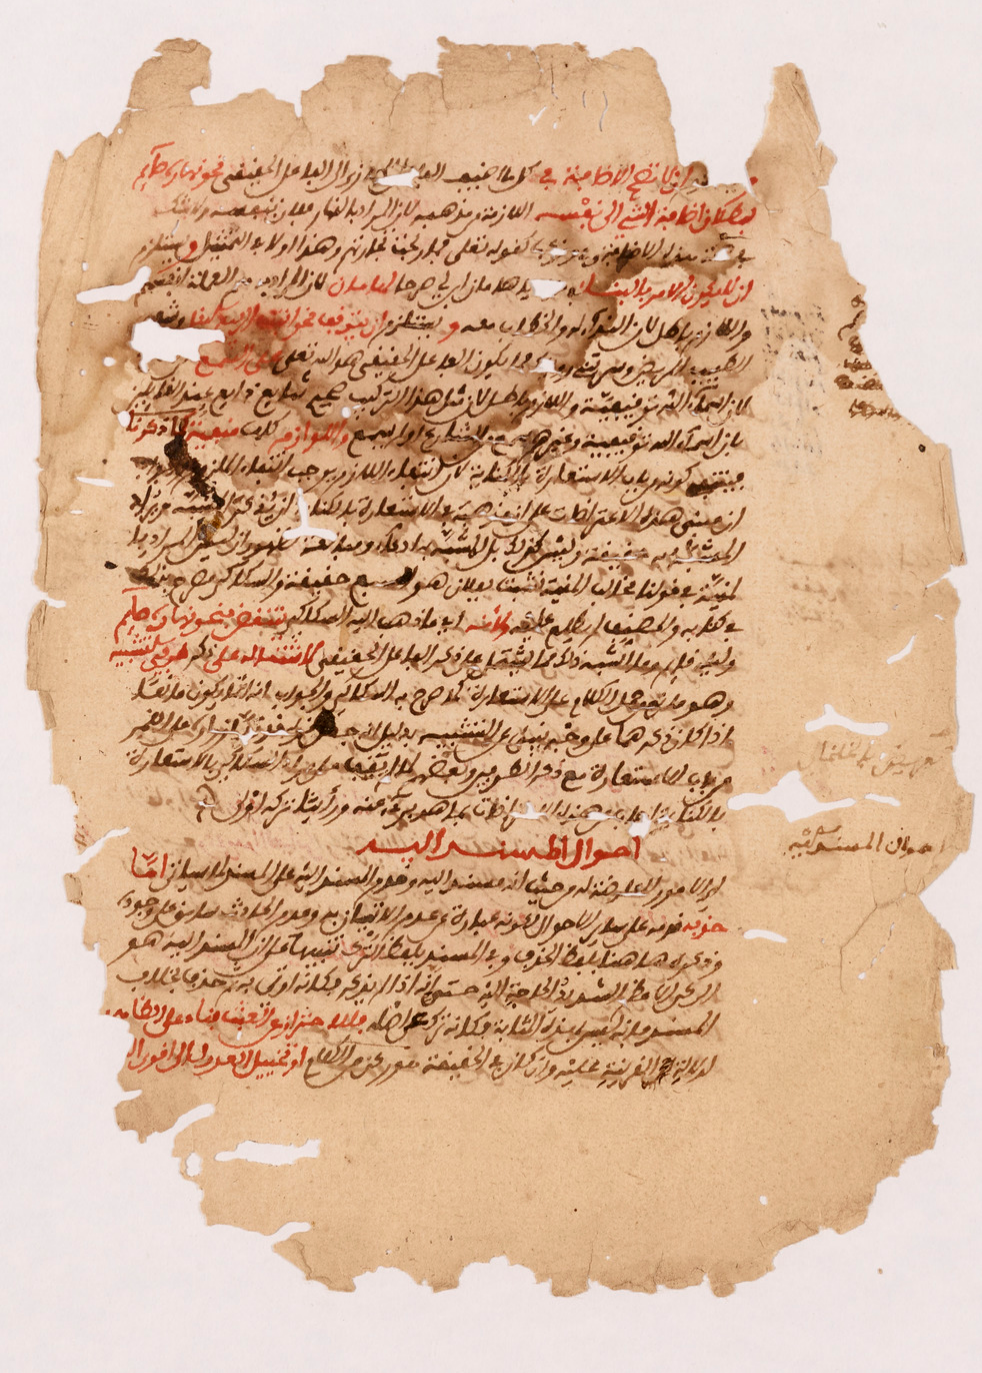 ان لا تصح الاضافة في كل ما اضيف الفاعل المجازي الى الفاعل الحقيقي نحو نهاره صائم
لبطلان اضافة الشئ الى نفسه اللازمة من مذهبه لان المراد بالنهار فلان نفسه ولا شك
في صحة هذه الاضافة كقوله تعلى فما ربحت تجارتهم وهذا اولى بالتمثيل و يستلزم
ان لا يكون الامر بالبناء يا هامان ابن لي صرحا لهامان لان المراد به العملة انفسهم
واللازم باطل لان النداء له والخطاب معه و يستلزم ان يتوقف نحو انبت الربيع البقل وشفى
الطبيب المريض وسرتني مما يكون الفاعل الحقيقي هو الله تعلى على السمع
لان اسماء الله توقيفية واللازم باطل لان مثل هذا التركيب صحيح شائع ذائع عند القائلين
بان اسماء الله توقيفية وغيرهم سمع من الشارع او لم يسمع واللوازم كلها منتفية كما ذكرنا
فينتفي كونه من باب الاستعارة بالكناية لان انتفاء اللازم يوجب انتفاء الملزوم والجواب
ان مبنى هذه الاعتراضات على ان مذهبه في الاستعارة بالكناية ان يذكر المشبه ويراد
المشبه به حقيقة وليس كذلك بل المشبه به ادعاء ومبالغة لظهور ان ليس المراد با
لمنية في قولنا مخالب المنية نشبت بفلان هو السبع حقيقة والسكاكي صرح بذلك
في كتابه والمصنف لم يطلع عليه ولانه اي ما ذهب اليه السكاكي ينتقض بنحو نهاره صائم
وليله قائم وما اشبه ذلك مما يشتمل على ذكر الفاعل الحقيقي لاشتماله على ذكر طرفي التشبيه
وهو مانع من حمل الكلام على الاستعارة كما صرح به السكاكي والجواب انه انما يكون مانعا
اذا كان ذكرهما على وجه ينبئ عن التشبيه بدليل انه جعل قوله قد زر ازراره على القمر
من باب الاستعارة مع ذكر الطرفين وبعضهم لما لم يقف على مراد السكاكي بالاستعارة
بالكناية اجاب عن هذه الاعتراضات بما هو بريء عنه ورأينا تركه اولى
احوال المسند اليه
احوال المسند اليه
اي الامور العارضة له من حيث انه مسند اليه وقدم المسند اليه على المسند لما سياتي اما
حذفه قدمه على سائر الاحوال لكونه عبارة عن عدم الاتيان به وعدم الحادث سابق على وجوده
وذكره هاهنا بلفظ الحذف وفي المسند بلفظ الترك تنبيها على ان المسند اليه هو
الركن الاعظم الشديد الحاجة اليه حتى انه اذا لم يذكر فكانه اوتي به ثم حذف بخلاف
المسند فانه ليس بهذه المثابة فكانه ترك عن اصله فللاحتراز عن العبث بناء على الظاهر
لدلالة القرينة عليه وان كان في الحقيقة هو ركن من الكلام او تخييل العدول الى اقوى ال